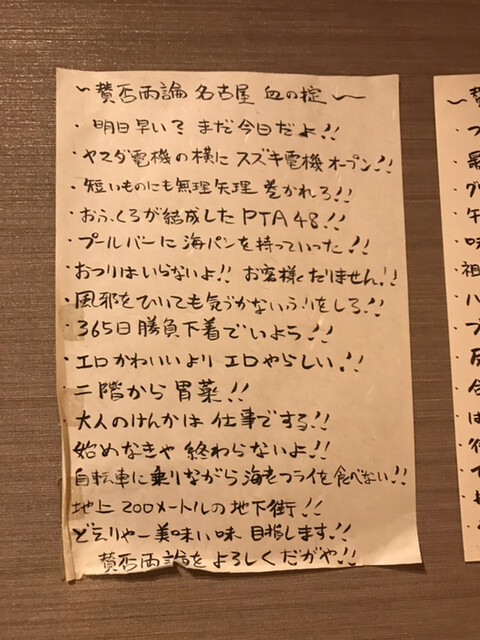 〜賛否両論 名古屋 血の掟〜
・明日早い？まだ今日だよ!!
・ヤスダ電機の横に スズキ電機オープン!!
・短いものにも無理矢理 巻かれろ!!
・おふくろが結成した PTA48!!
・プールバーに海パンを持っていった!!
・おつりはいらないよ!! お客様たりません!!
・風邪をひいても気づかないふりをしろ!!
・365日勝負下着でいよう!!
・エロかわいいより エロやらしい!!
・二階から 胃薬!!
・大人のけんかは 仕事でする!!
始めなきゃ 終わらないよ!!
自転車に乗りながら海老フライを食べない!!
地上200メートルの地下街!!
どえりゃー美味い味 目指します!!
賛否両論を よろしくだがや!!
〜賛
・フ
・最
・グ
・午
・味
・祖
・ハ
・フ